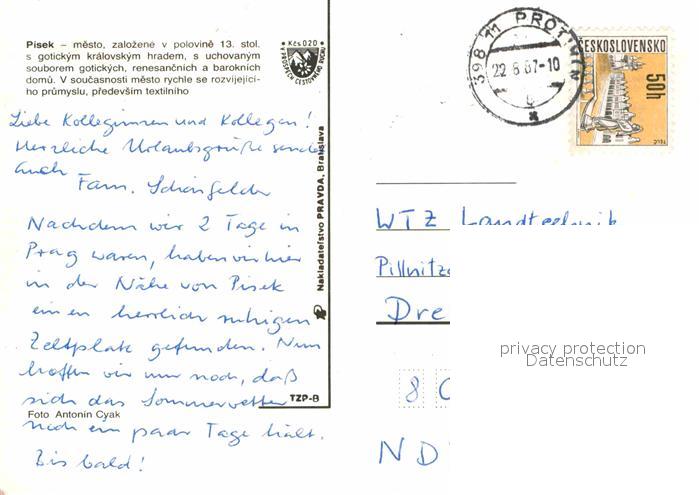 Písek – město, založené v polovině 13. stol.
s gotickým královským hradem, s uchovaným
souborem gotických, renesančních a barokních
domů. V současnosti město rychle se rozvíjející-
ho průmyslu, především textilního
Kčs 020
398 11 PROTIVÍN
22.6.87-10
ČESKOSLOVENSKO
50h
Nakladateľstvo PRAVDA, Bratislava
Liebe Kolleginnen und Kollegen!
Herzliche Urlaubsgrüße sendet
Euch
Fam. Schönfelder
Nachdem wir 2 Tage in
Prag waren, haben wir hier
in der Nähe von Pisek
einen herrlich ruhigen
Zeltplatz gefunden. Nun
hoffen wir nur noch, daß
sich das Sommerwetter
noch ein paar Tage hält.
Bis bald!
TZP-B
Foto Antonín Cyak
WTZ Landtechnik
Pillnitz
Dre
8
ND
privacy protection
Datenschutz